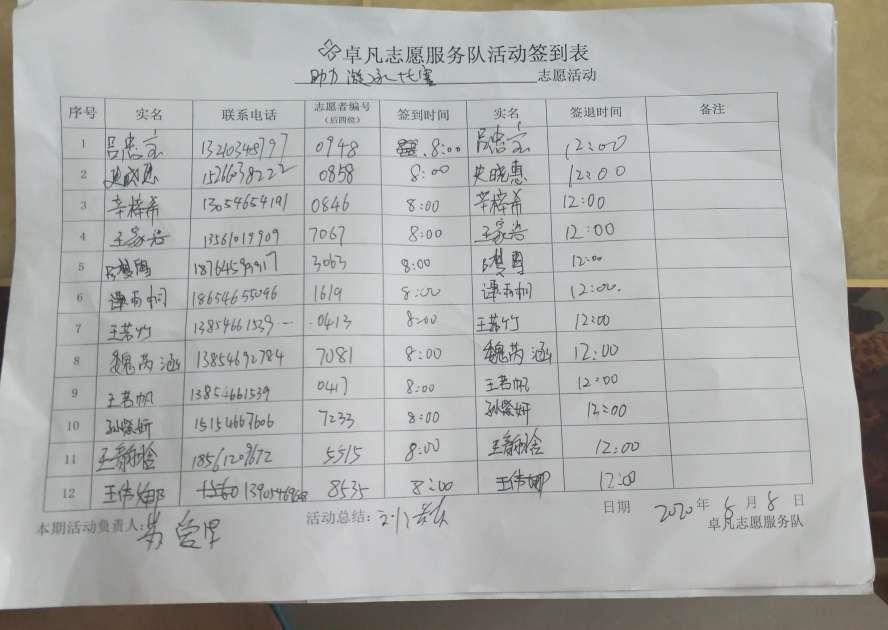 卓凡志愿服务队活动签到表
助力 托富 志愿活动
序号 实名 联系电话 志愿者编号（后四位） 签到时间 实名 签退时间 备注
1 吕忠宝 13210348797 0948 8:00 吕忠宝 12:00
2 史晓惠 15266038222 0858 8:00 史晓惠 12:00
3 辛梓希 13054654191 0846 8:00 辛梓希 12:00
4 王家浴 13561019909 7067 8:00 王家浴 12:00
5 3063 8:00 12:00
6 谭雨桐 18654655096 1619 8:00 谭雨桐 12:00.
7 王若竹 13854661539 0413 8:00 王若竹 12:00
8 魏芮涵 13854692784 7081 8:00 魏芮涵 12:00
9 王若帆 13854661539 0417 8:00 王若帆 12:00
10 孙紫妍 15154667606 7233 8:00 孙紫妍 12:00
11 18561209672 5515 8:00 12:00
12 王伟娜 8535 8:00 王伟娜 12:00
本期活动负责人: 活动总结: 日期 2020年 8月 8日
卓凡志愿服务队